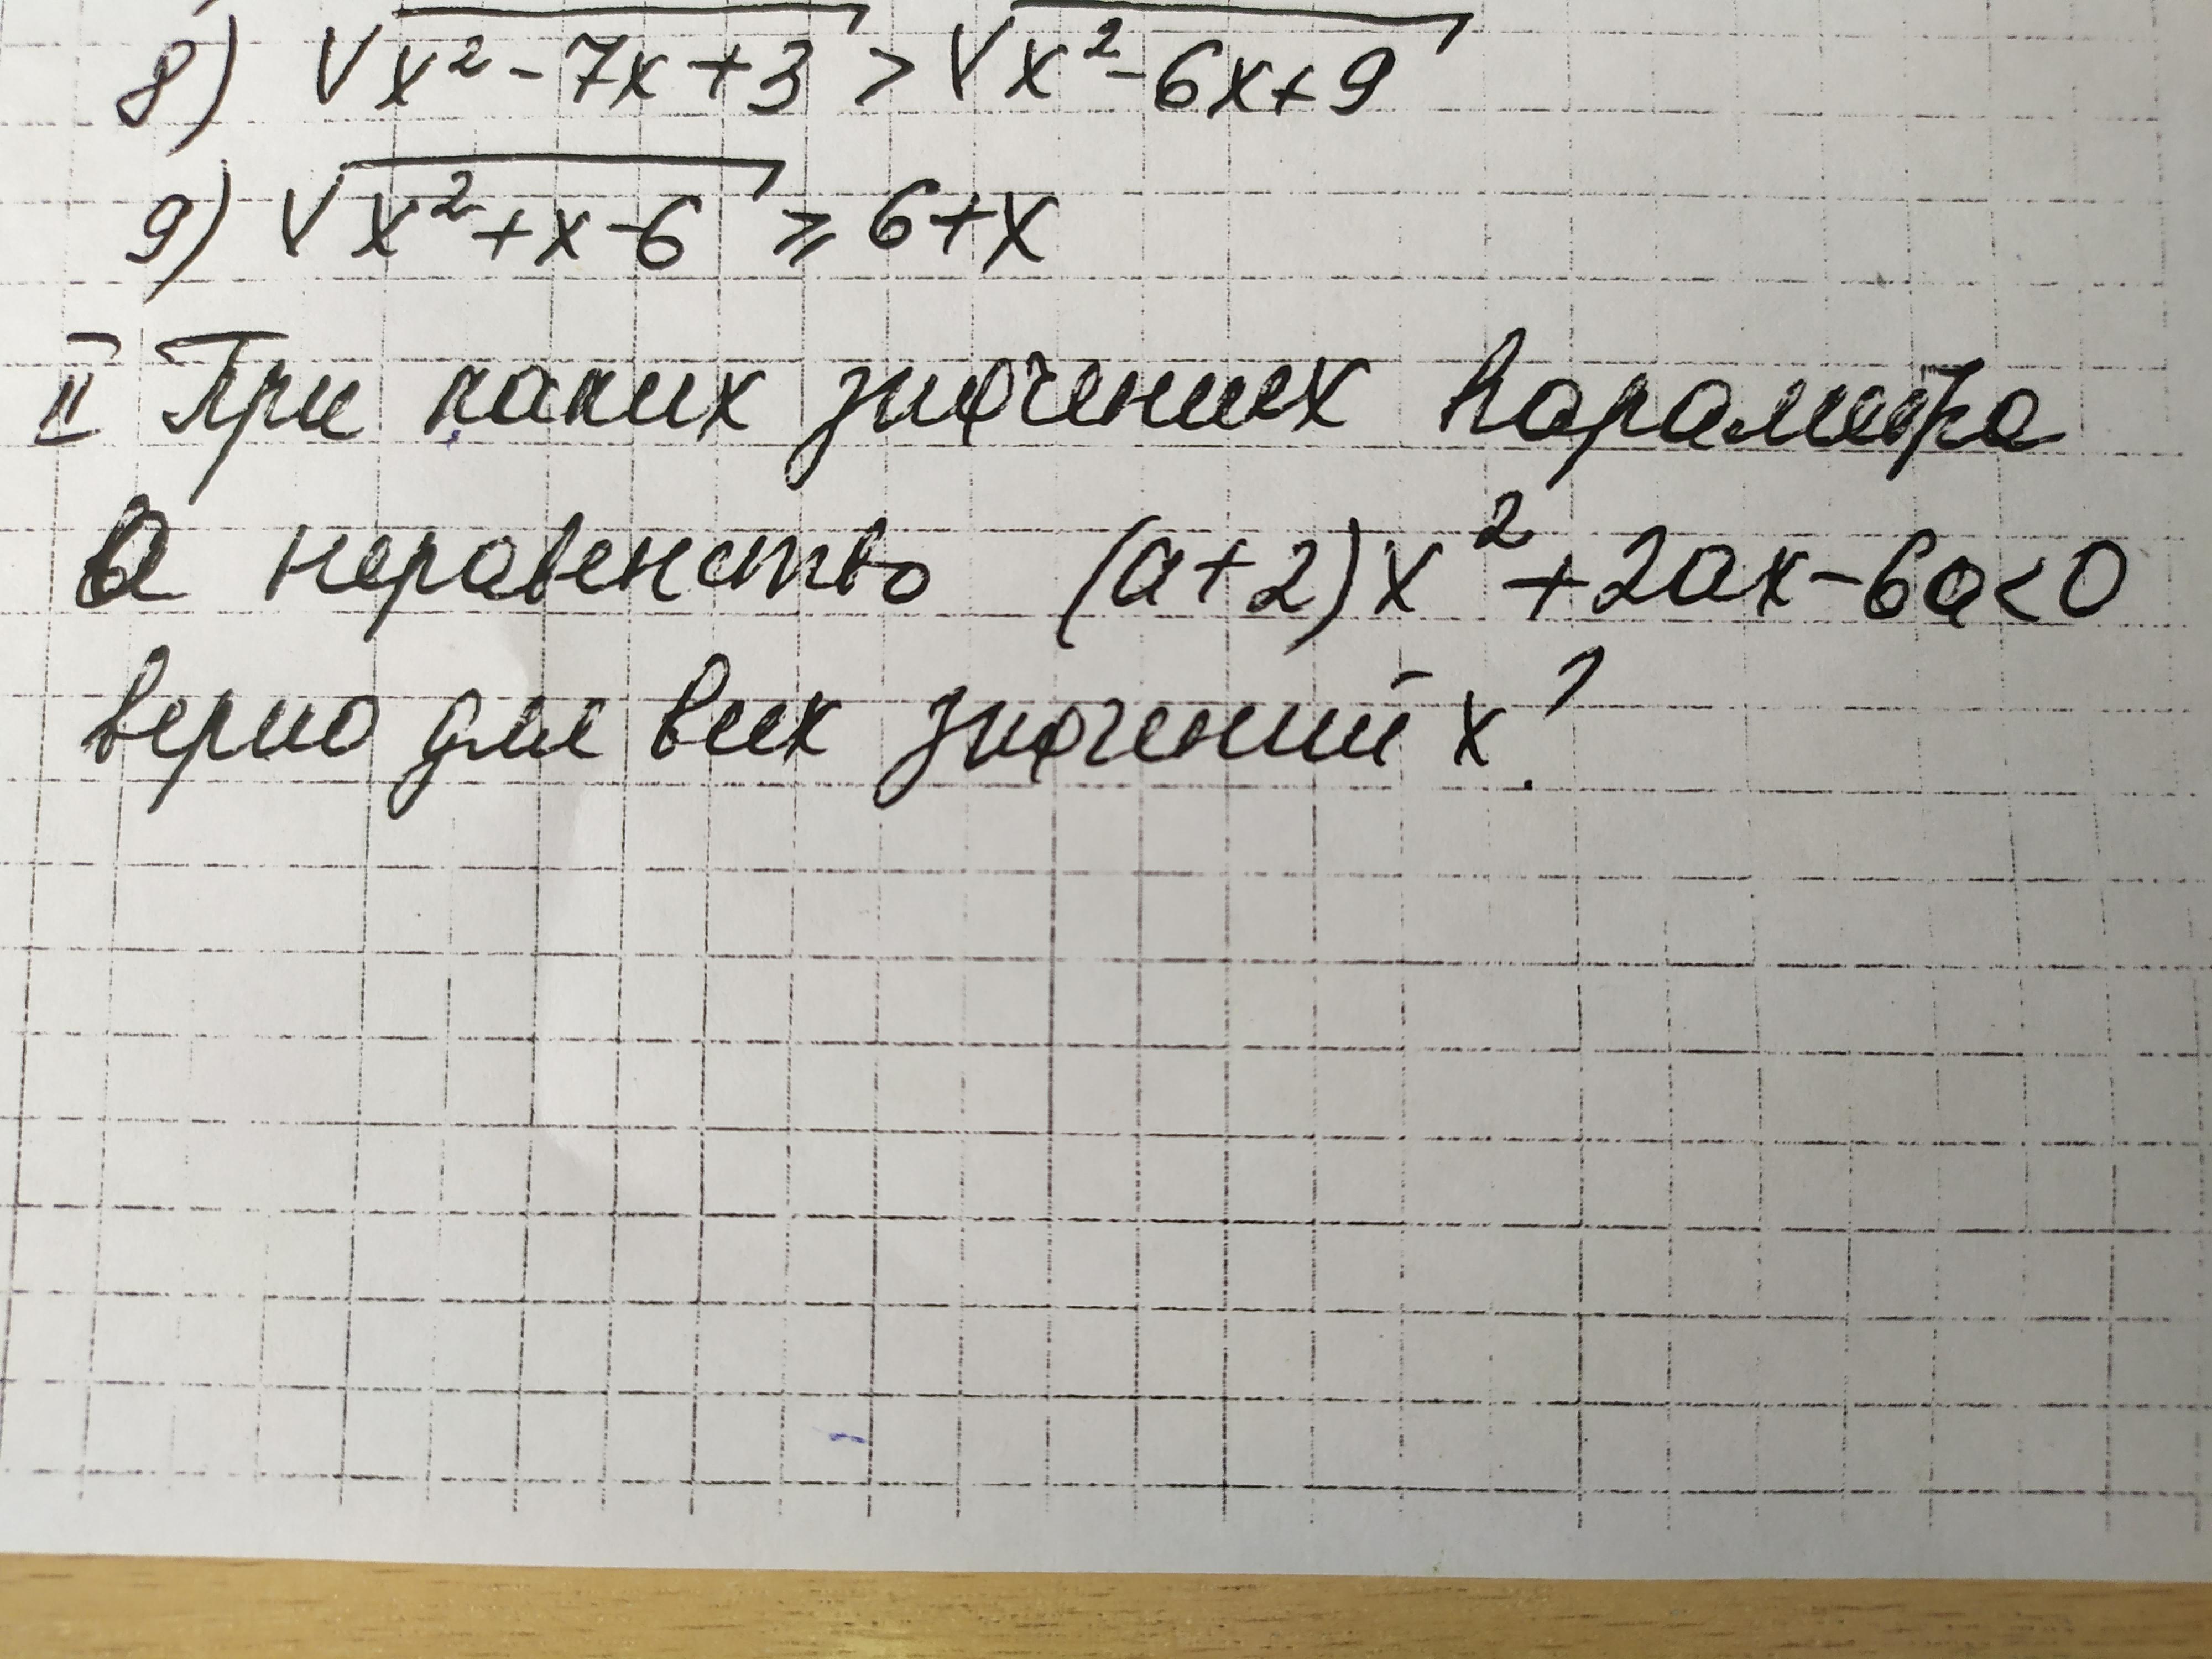 8) √x² - 7x + 3 > √x² - 6x + 9
9) √x² + x - 6 ≥ 6 + x
II При каких значениях параметра
а неравенство (a+2)x² + 2ax - 6a < 0
верно для всех значений x?